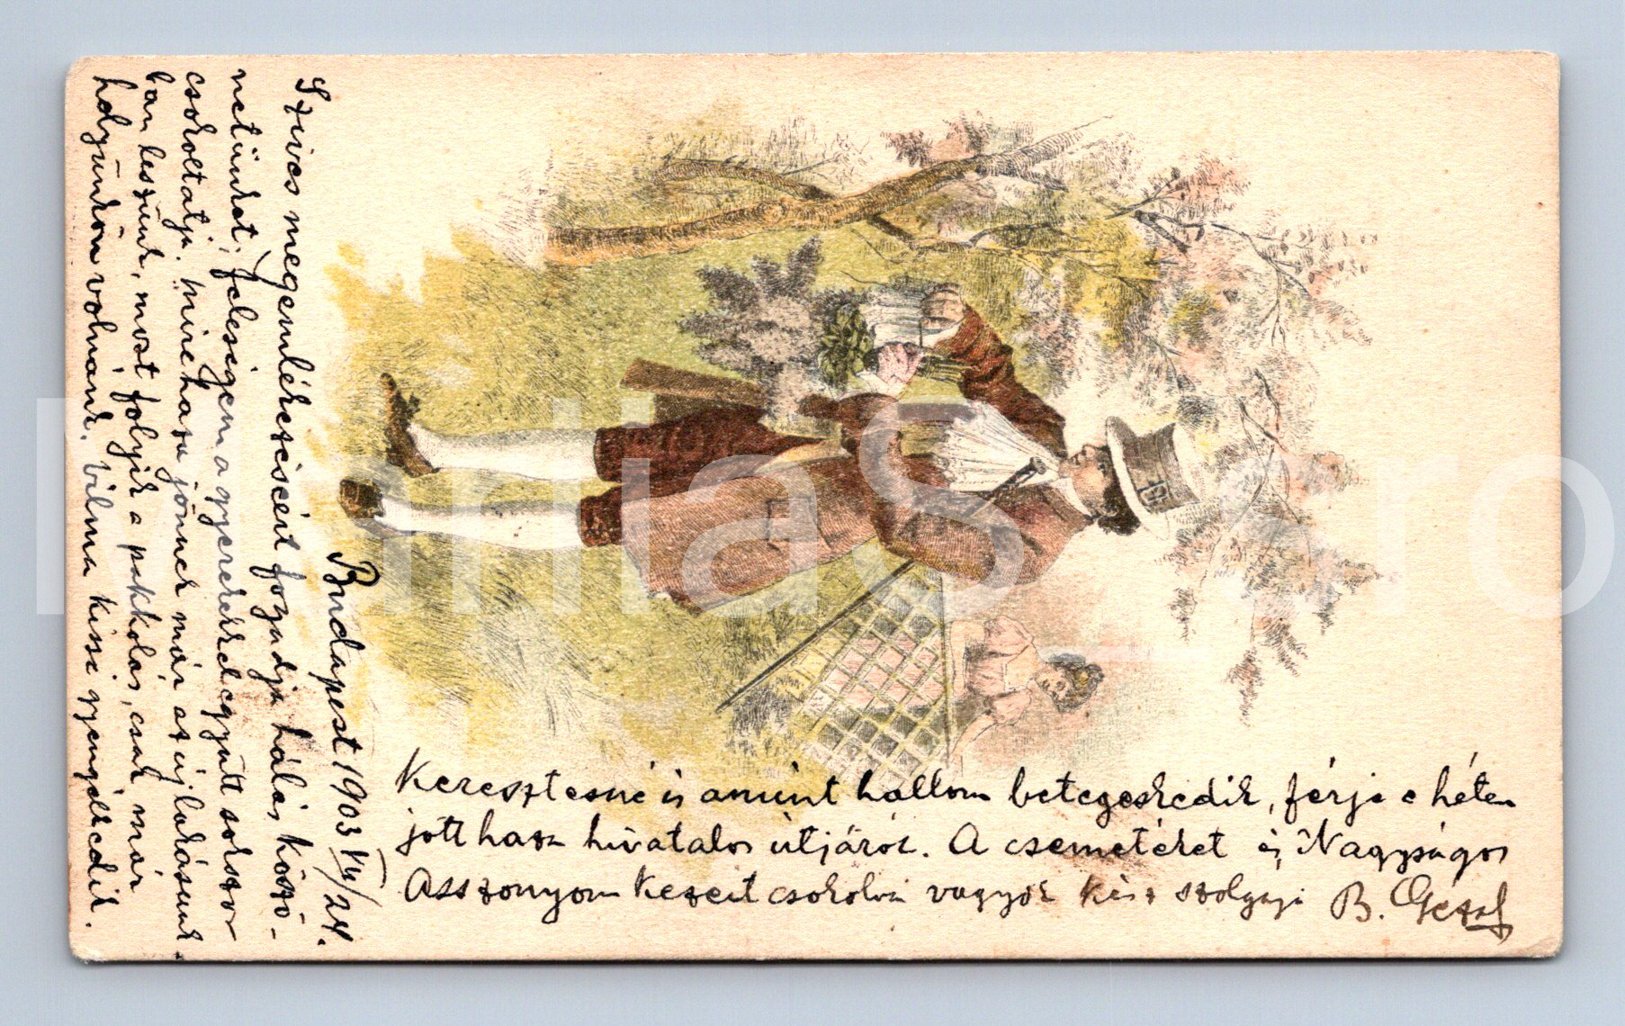 Budapest 1903 VII/24.
Szives megemlékezéséit fogadja hálás köszö-
netünket, feleségem a gyerekekkel együtt sokszor
csókoltatja. Mire haza jönnek már az uj lakásunk-
ban leszünk, most folyik a pakkolás, csak már
helyünkön volnánk. Vilma kissé gyengélkedik.
Keresztesné is amint hallom betegeskedik, férje e héten
jött haza hivatalos útjáról. A csemetéket és Nagyságos
Asszonyom kezeit csókolva vagyok kész szolgája B. Géza
PartiaS .ro